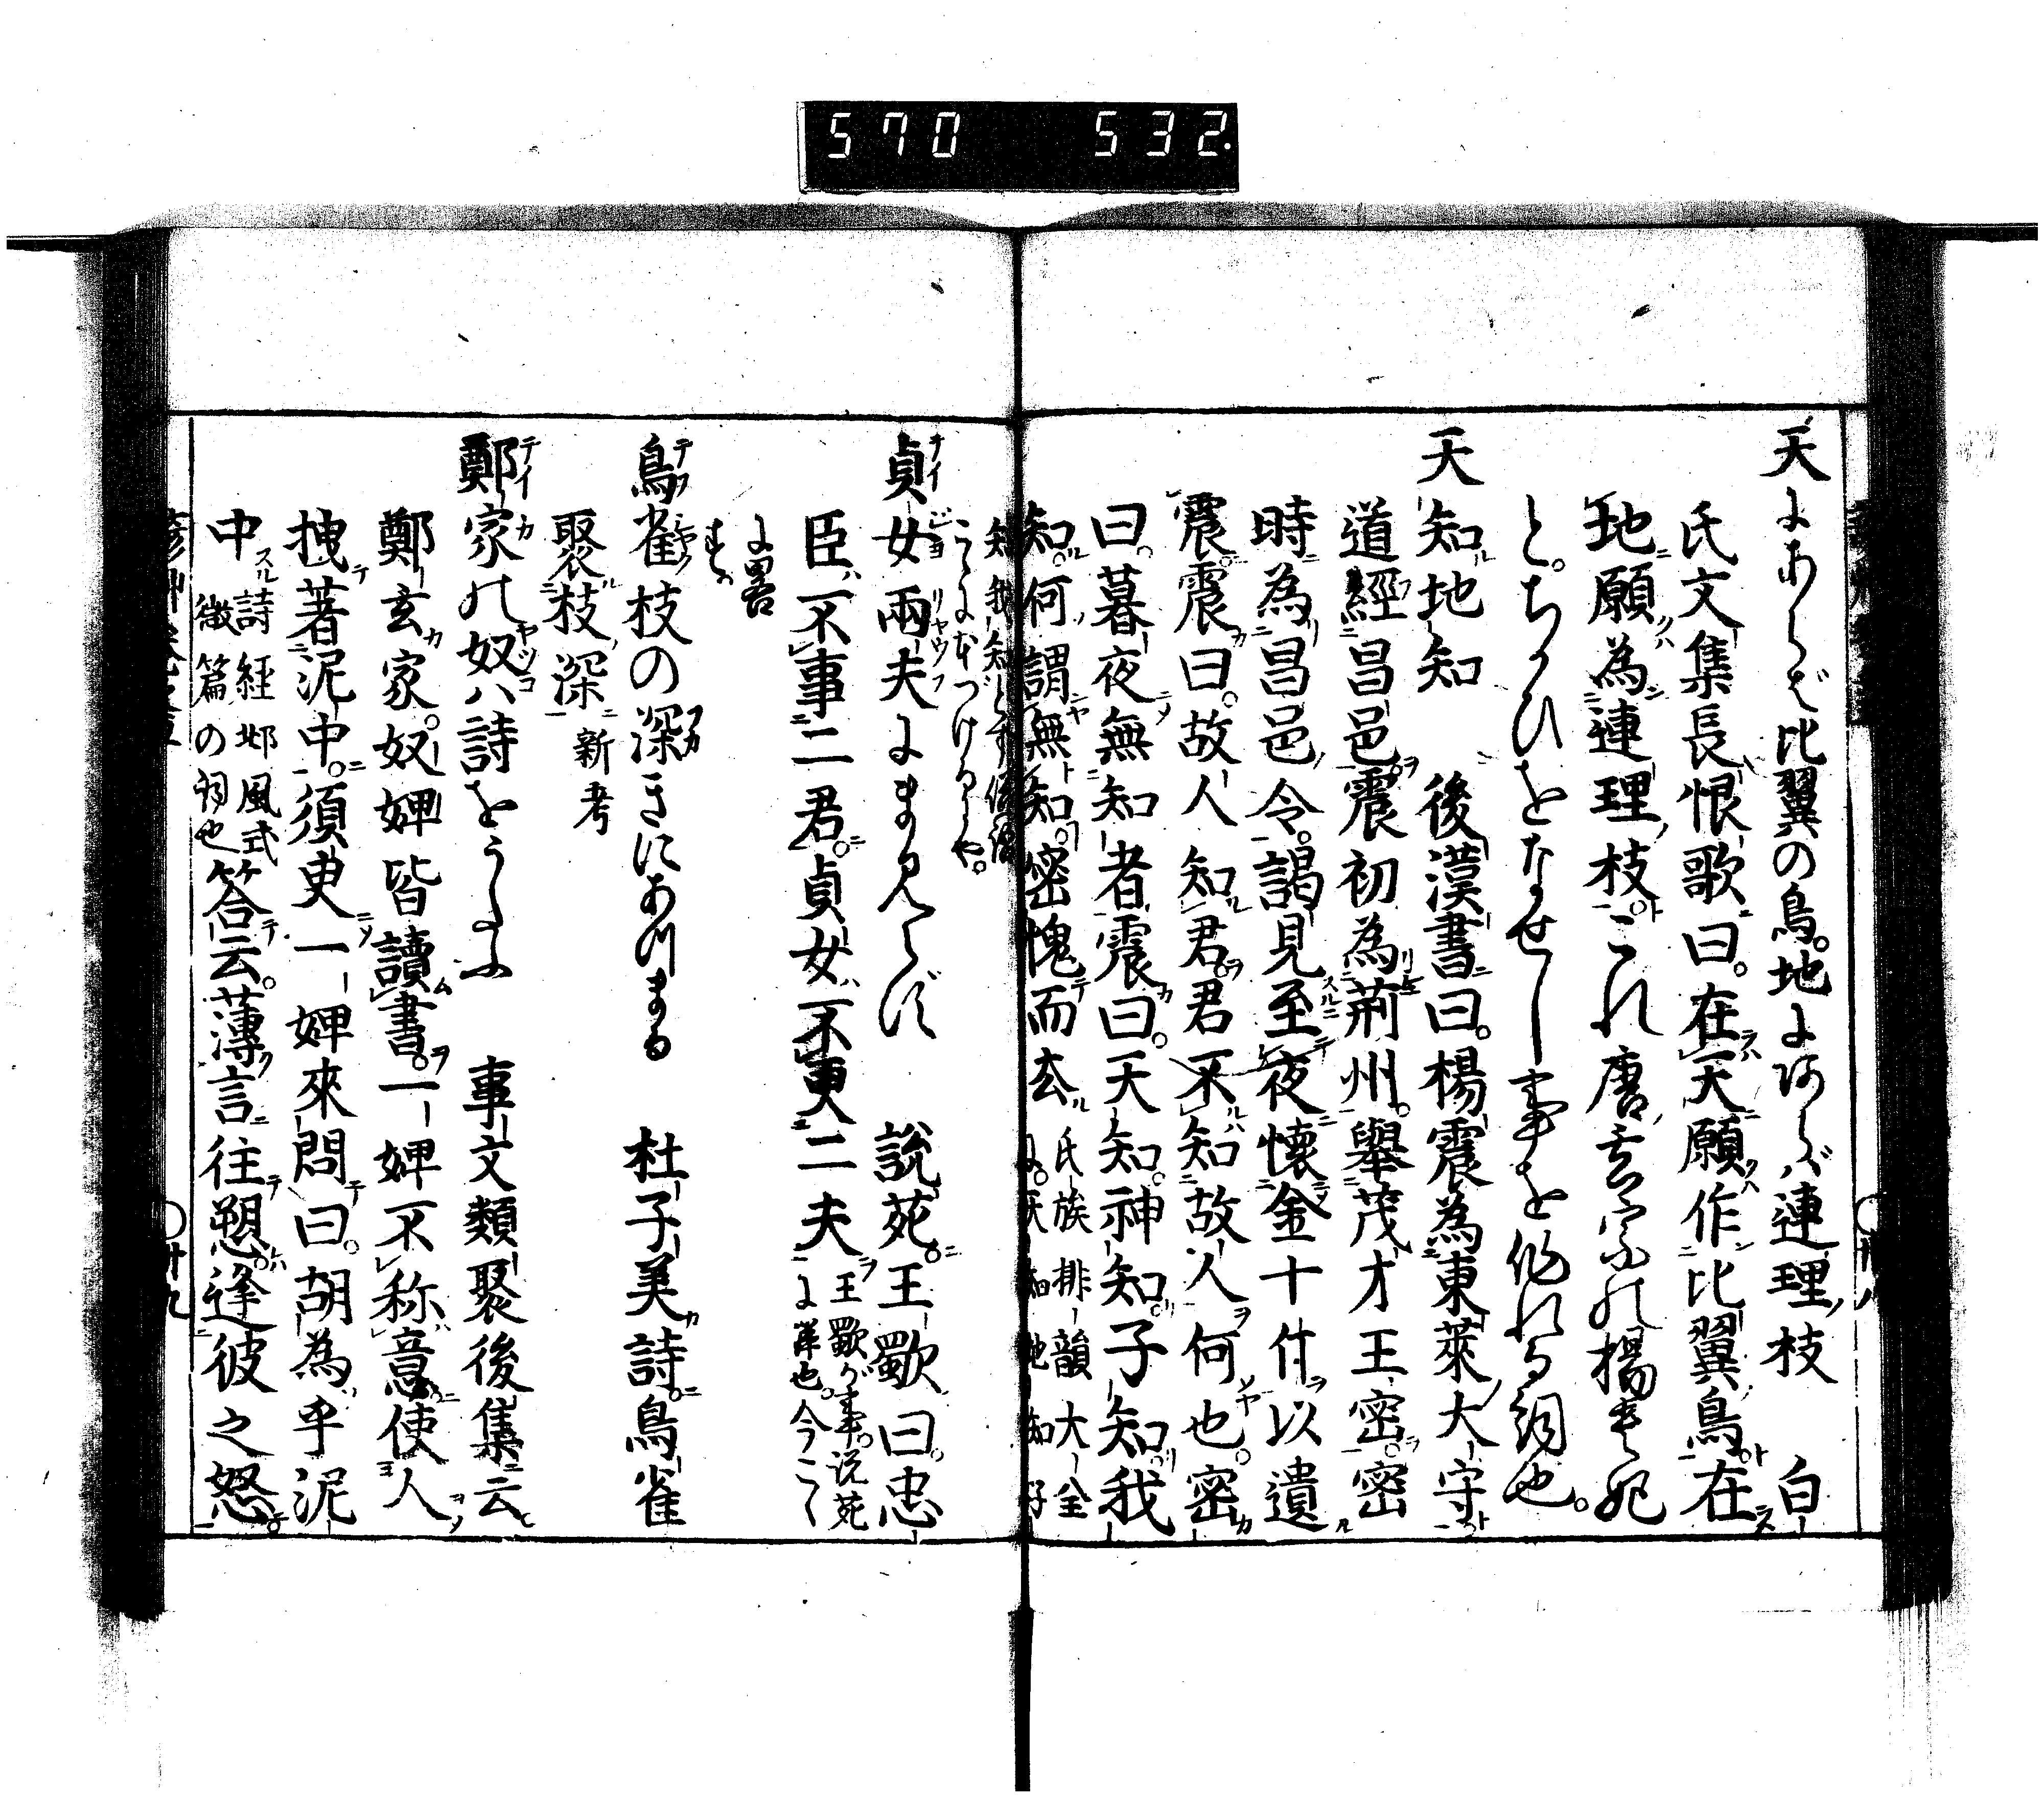 570 532.
天にあらば比翼の鳥。地にあらば連理ノ枝 白
氏文集長恨歌曰。在天願作比翼鳥在
地願為連理枝これ唐玄宗の楊貴妃
と。ちかひをなせし事を作れる詞也。
天知地知 後漢書曰。楊震為東萊大守
道經昌邑震初為荊州。舉茂才王密密
時為昌邑令。謁見至夜懐金十斤以遺
震震曰。故人知君君不知故人何也。密
曰。暮夜無知者震曰。天知。神知子知我
知。何謂無知。密愧而去 氏族排韻大全
に。天知地知子
知我知
貞女両夫にまみえず 説苑王歜曰。忠
臣不事二君。貞女不更二夫 王歜が事。説苑
に詳也。今こゝ
に畧
す
鳥雀枝の深きにあつまる 杜子美詩鳥雀
聚枝深 新考
鄭家の奴ハ詩をうたふ 事文類聚後集云
鄭玄家。奴婢皆讀書。一婢不称意使人
拽著泥中。須臾一婢來問曰。胡為乎泥
中 詩経邶風式
微篇の詞也 答云。薄言往愬逢彼之怒